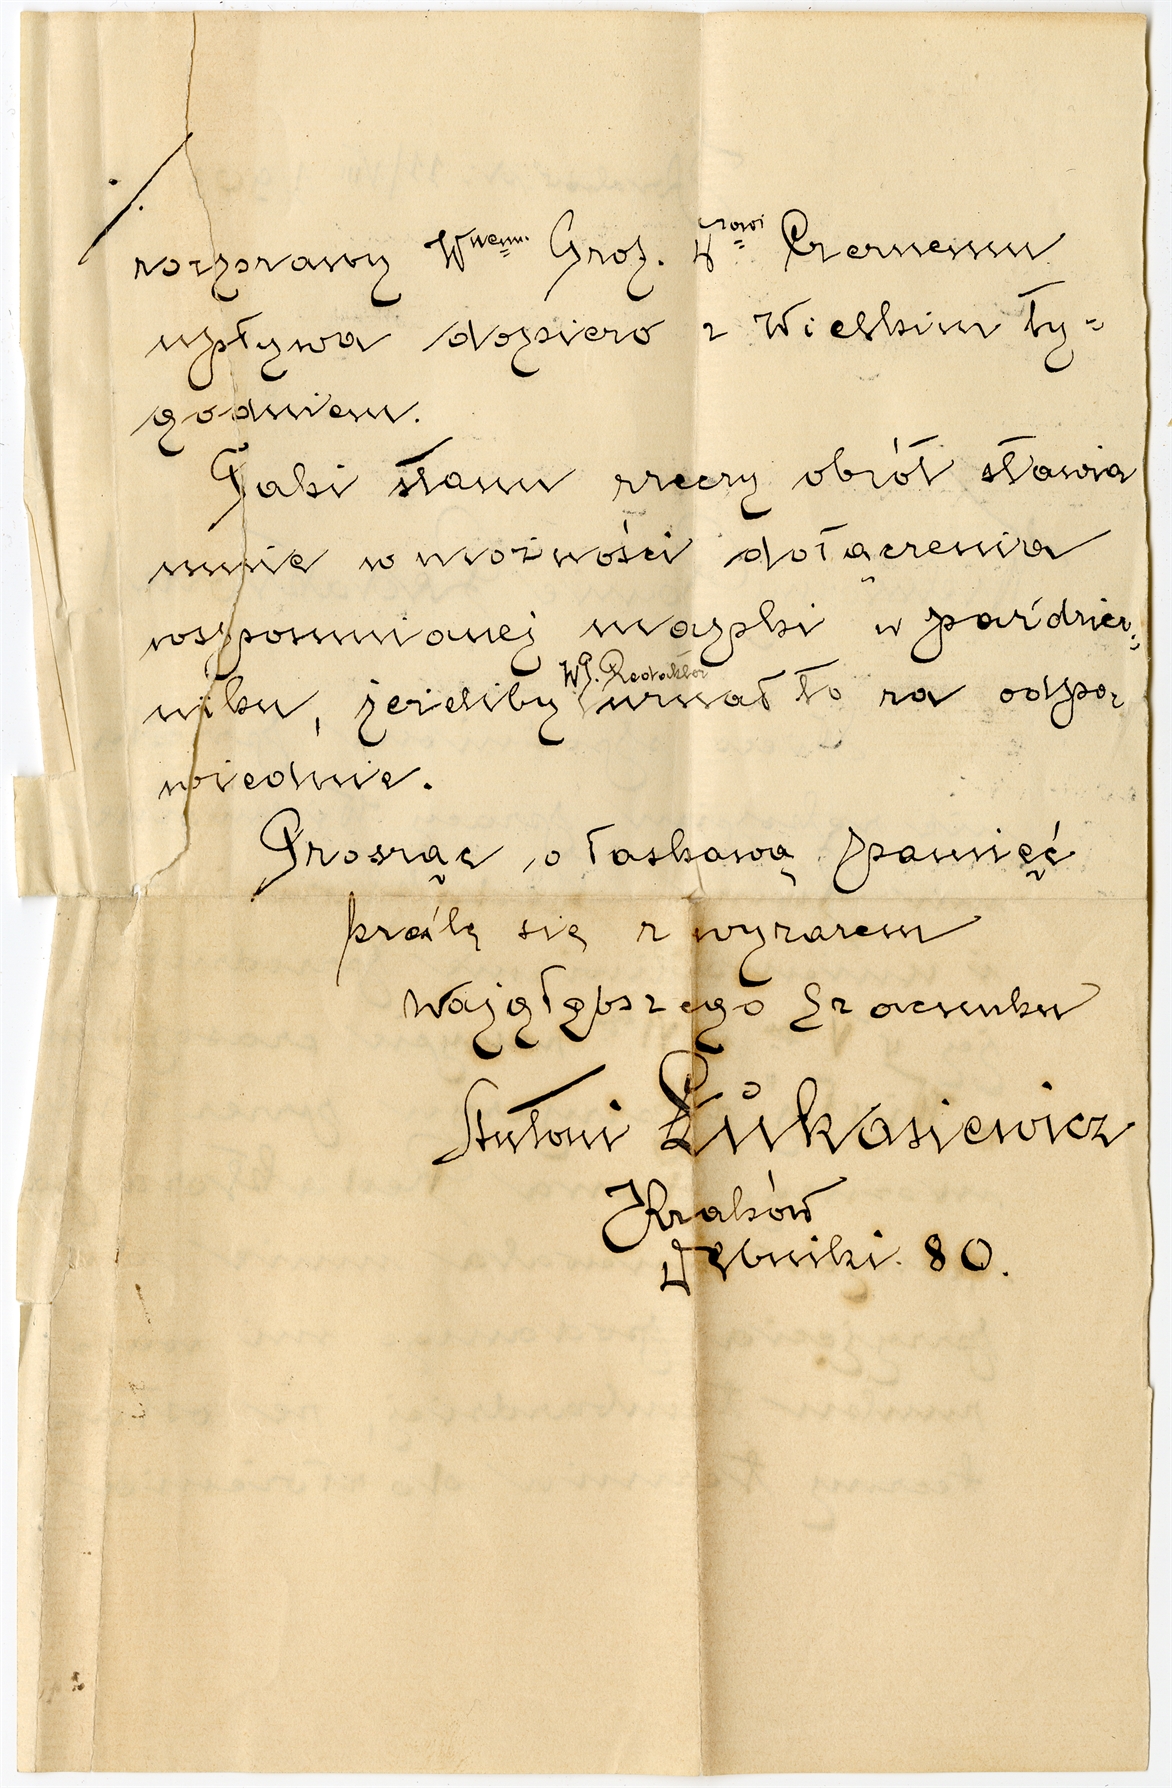 rozprawy Wnemu Prof. Drowi Czernemu
upływa dopiero z Wielkim ty=
godniem.
Taki stanu rzeczy obrót stawia
mnie w możności dołączenia
wspomnianej mapki w paździer=
niku, jeżeliby WP. Redaktor uznał to za odpo=
wiednie.
Prosząc o łaskawą pamięć
kreślę się z wyrazem
najgłębszego szacunku
Antoni Łukasiewicz
Kraków
Dębniki 80.